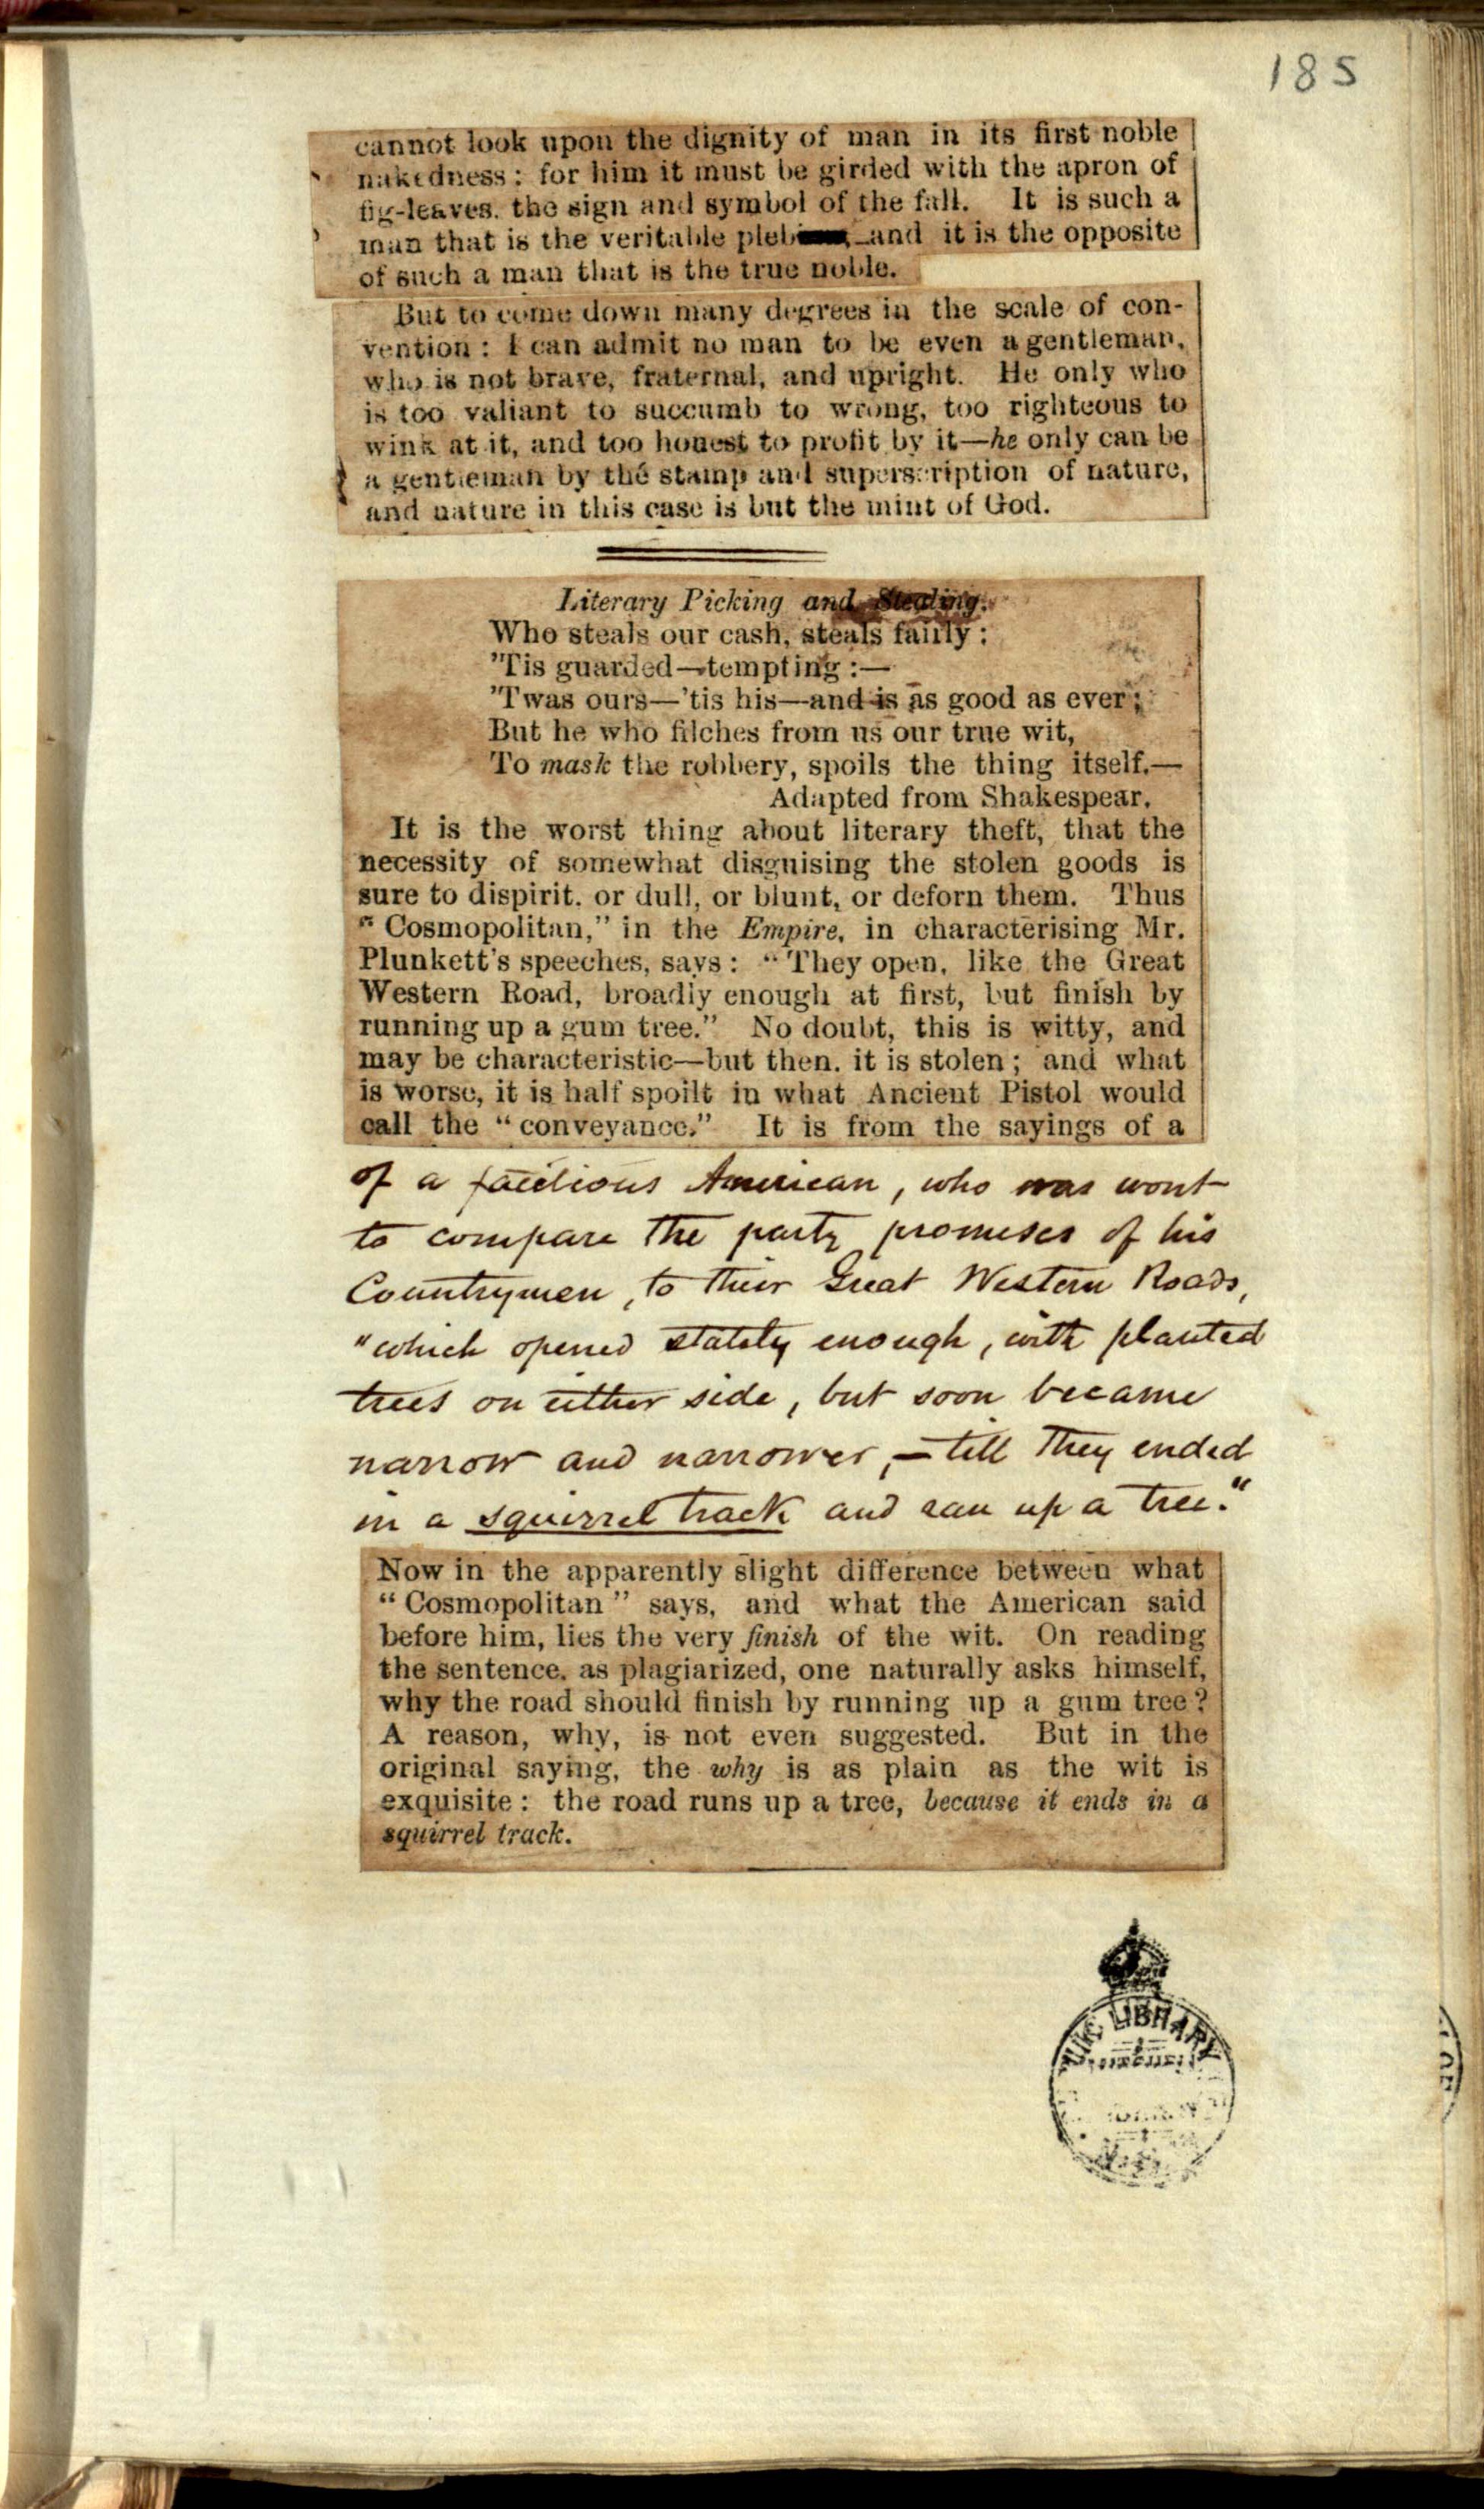 185
cannot look upon the dignity of man in its first noble
nakedness: for him it must be girded with the apron of
fig-leaves. the sign and symbol of the fall. It is such a
man that is the veritable and it is the opposite
of such a man that is the true noble.
But to come down many degrees in the scale of con-
vention: I can admit no man to be even a gentleman,
who is not brave, fraternal, and upright. He only who
is too valiant to succumb to wrong, too righteous to
wink at it, and too honest to profit by it—he only can be
a gentleman by the stamp and superscription of nature,
and nature in this case is but the mint of God.
Literary Picking and Stealing.
Who steals our cash, steals fairly:
'Tis guarded—tempting:—
'Twas ours—'tis his—and is as good as ever;
But he who filches from us our true wit,
To mask the robbery, spoils the thing itself.—
Adapted from Shakespear.
It is the worst thing about literary theft, that the
necessity of somewhat disguising the stolen goods is
sure to dispirit. or dull, or blunt, or deforn them. Thus
"Cosmopolitan," in the Empire, in characterising Mr.
Plunkett's speeches, says: "They open, like the Great
Western Road, broadly enough at first, but finish by
running up a gum tree." No doubt, this is witty, and
may be characteristic—but then. it is stolen; and what
is worse, it is half spoilt in what Ancient Pistol would
call the "conveyance." It is from the sayings of a
of a facetious American, who was wont
to compare the party promises of his
Countrymen, to their Great Western Roads,
"which opened stately enough, with planted
trees on either side, but soon became
narrow and narrower,—till they ended
in a squirrel track and ran up a tree."
Now in the apparently slight difference between what
"Cosmopolitan" says, and what the American said
before him, lies the very finish of the wit. On reading
the sentence. as plagiarized, one naturally asks himself,
why the road should finish by running up a gum tree?
A reason, why, is not even suggested. But in the
original saying, the why is as plain as the wit is
exquisite: the road runs up a tree, because it ends in a
squirrel track.
LIBRARY